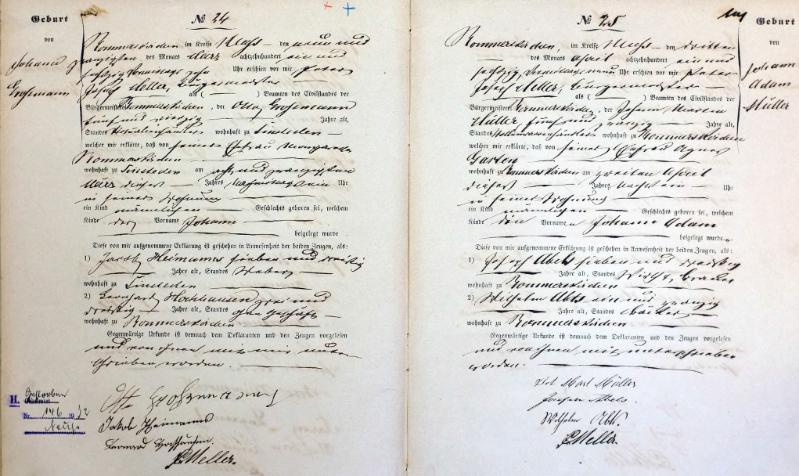 Geburt
von
Johann
№ 24
Rommerskirchen im Kreise Neuss den neun und
zwanzigsten des Monats März achtzehnhundert ein und
sechszig Vormittags zehn Uhr erschien vor mir Peter
Josef Meller, Bürgermeister
als ( ) Beamten des Civilstandes der
Bürgermeisterei Rommerskirchen, der Otto
fünf und vierzig Jahre alt,
Standes wohnhaft zu Sinsteden
welcher mir erklärte, daß von seiner Ehefrau Margaretha
Rommerskirchen
wohnhaft zu Sinsteden am acht und zwanzigsten
März dieses Jahres Nachmittags ein Uhr
in seiner Wohnung
ein Kind männlichen Geschlechts geboren sei, welchem
Kinde der Vorname Johann
beigelegt wurde
Diese von mir aufgenommene Erklärung ist geschehen in Anwesenheit der beiden Zeugen, als:
1) Jacob Heimanns sieben und dreißig
Jahre alt, Standes Weber
wohnhaft zu Sinsteden
2) Bernhard zwei und
dreißig Jahre alt, Standes ohne Geschäft
wohnhaft zu Rommerskirchen
Gegenwärtige Urkunde ist demnach dem Deklaranten und den Zeugen vorgelesen
und von ihnen und mir unter-
schrieben worden.
H. Gestorben
Nr. 146
Neuss
Otto
Jakob Heimanns
P. Meller
№ 25
Geburt
von
Johann
Adam
Müller
Rommerskirchen, im Kreise Neuss den dritten
des Monats April achtzehnhundert ein und
sechszig Vormittags neun Uhr erschien vor mir Peter
Josef Meller, Bürgermeister
als ( ) Beamten des Civilstandes der
Bürgermeisterei Rommerskirchen, der Johann
Müller, fünf und zwanzig Jahre alt,
Standes wohnhaft zu Rommerskirchen
welcher mir erklärte, daß von seiner Ehefrau Agnes
Garten
wohnhaft zu Rommerskirchen am zweiten April
dieses Jahres Uhr
in seiner Wohnung
ein Kind männlichen Geschlechts geboren sei, welchem
Kinde die Vornamen Johann Adam
beigelegt wurden
Diese von mir aufgenommene Erklärung ist geschehen in Anwesenheit der beiden Zeugen, als:
1) Josef Abels sieben und dreißig
Jahre alt, Standes Wirth,
wohnhaft zu Rommerskirchen
2) Wilhelm Abts ein und zwanzig
Jahre alt, Standes
wohnhaft zu Rommerskirchen
Gegenwärtige Urkunde ist demnach dem Deklaranten und den Zeugen vorgelesen
und von ihnen und mir unterschrieben
worden.
Müller
Abels
Wilhelm Abts
P. Meller